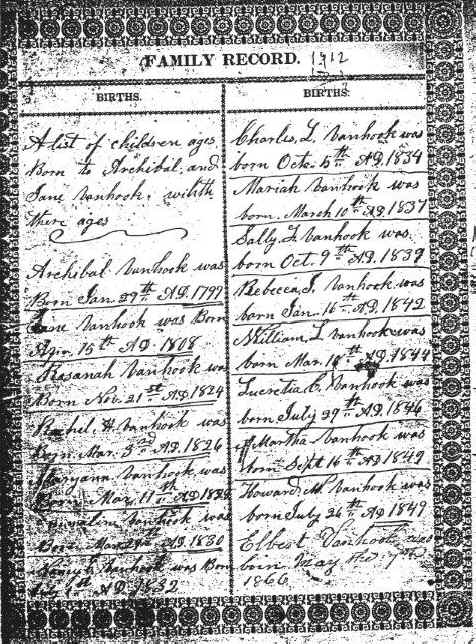 FAMILY RECORD. 1912
BIRTHS.
A list of children ages
Born to Archibal, and
Jane Vanhook, wilith
there ages
Archibal Vanhook was
Born Jan. 29th AD. 1799
Jane Vanhook was Born
15th AD 1808
Rosanah Vanhook was
Born Nov. 21st AD 1824
Rachel, H. Vanhook was
Born Mar. 3rd AD. 1826
Maryann Vanhook was
Born May. 11th AD 1828
Vanhook was
Born 29th AD. 1830
Nancy Vanhook was Born
1st AD. 1832
BIRTHS.
Charles, L. Vanhook was
born Oct. 5th AD, 1834
Mariah Vanhook was
born. March 10th AD, 1837
Sally, L Vanhook was
born Oct. 9th AD, 1839
Rebecca, J. Vanhook was
born Jan. 16th AD, 1842
William, L Vanhook was
born Mar. AD, 1844
Lucretia C. Vanhook was
born July 29th AD, 1846
Martha Vanhook was
born Sept 16th AD, 1849
Howard, M. Vanhook was
born July 26th AD, 1849
Elbest Vanhook was
born May the 7th
1866